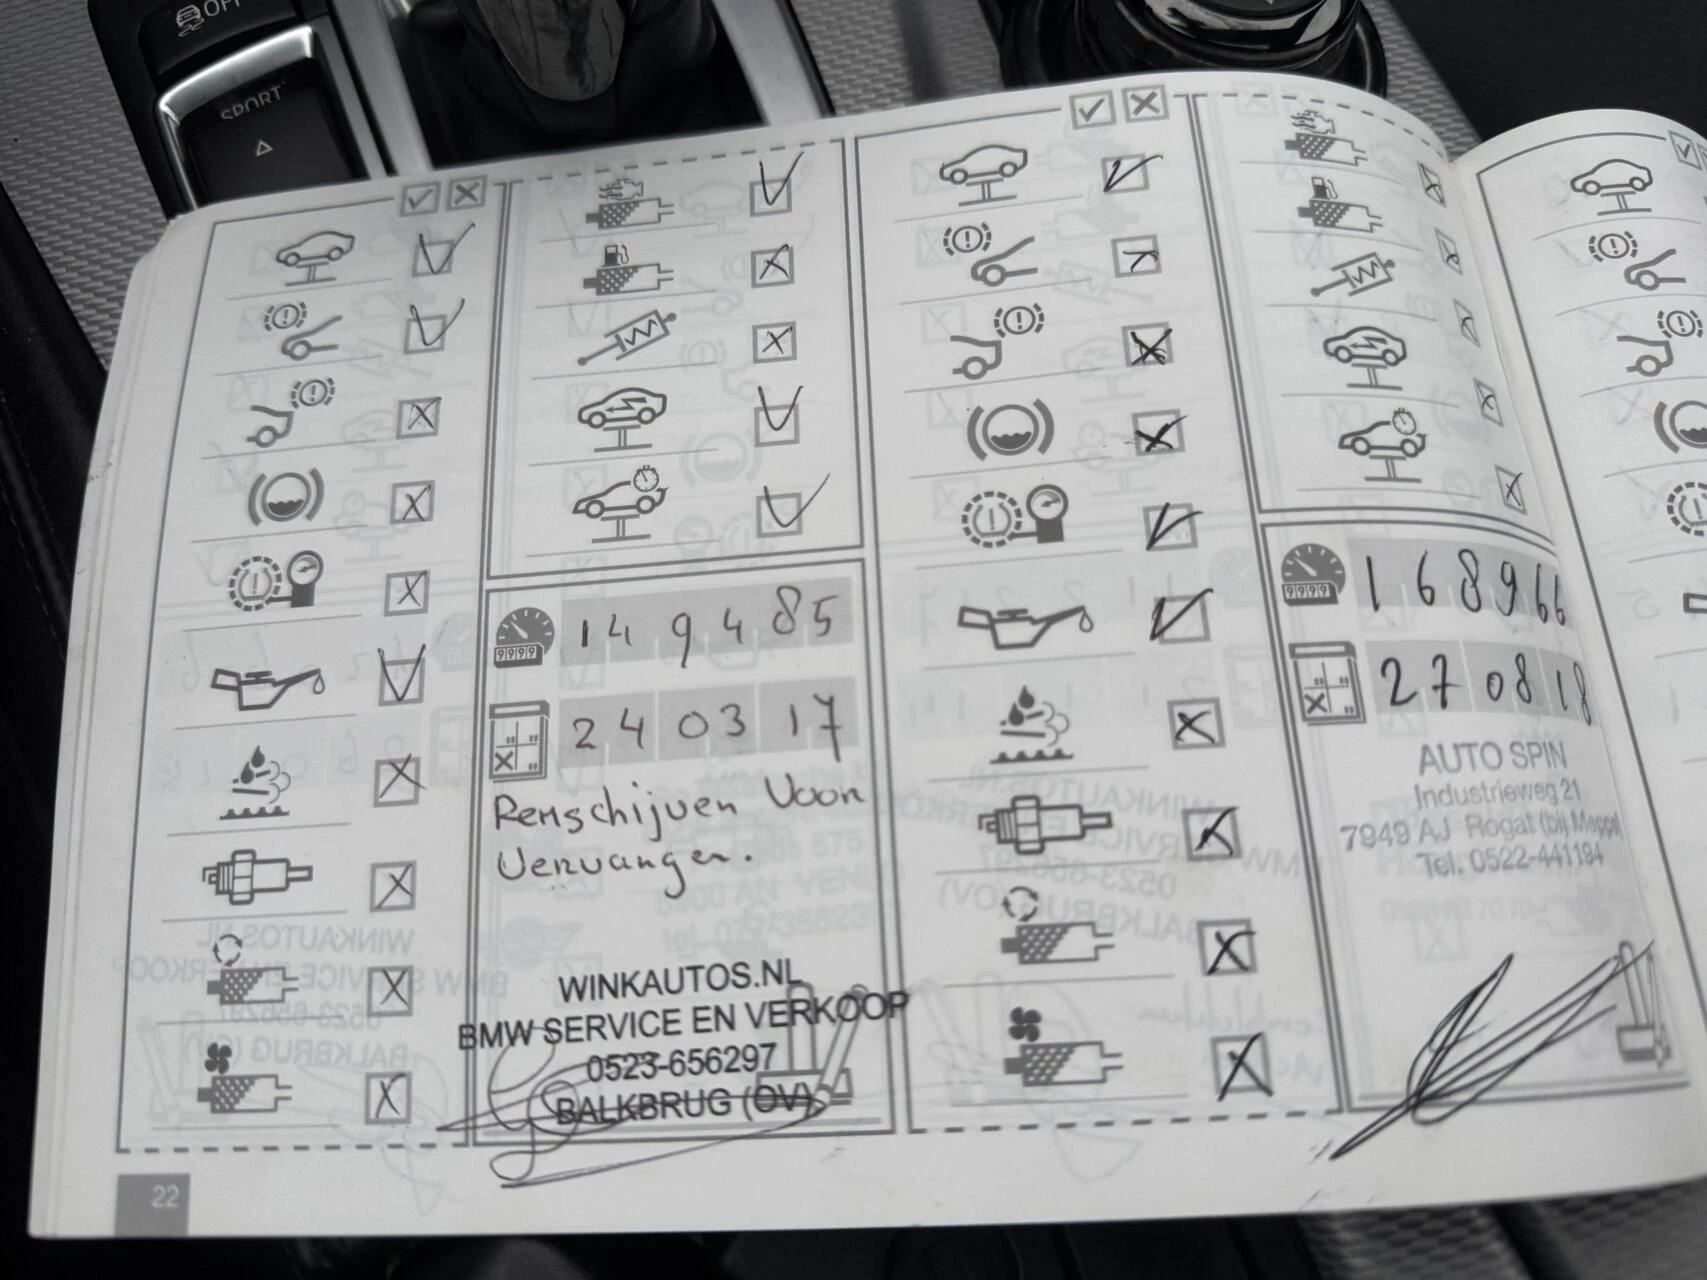 OFF
SPORT
9999
14 9 4 85
24 03 17
Remschijven Voor
Vervangen.
WINKAUTOS.NL
BMW SERVICE EN VERKOOP
0523-656297
BALKBRUG (OV)
22
9999
1 6 8 9 66
27 08 18
AUTO SPIN
Industrieweg 21
7949 AJ Rogat (bij Meppel
Tel. 0522-441184